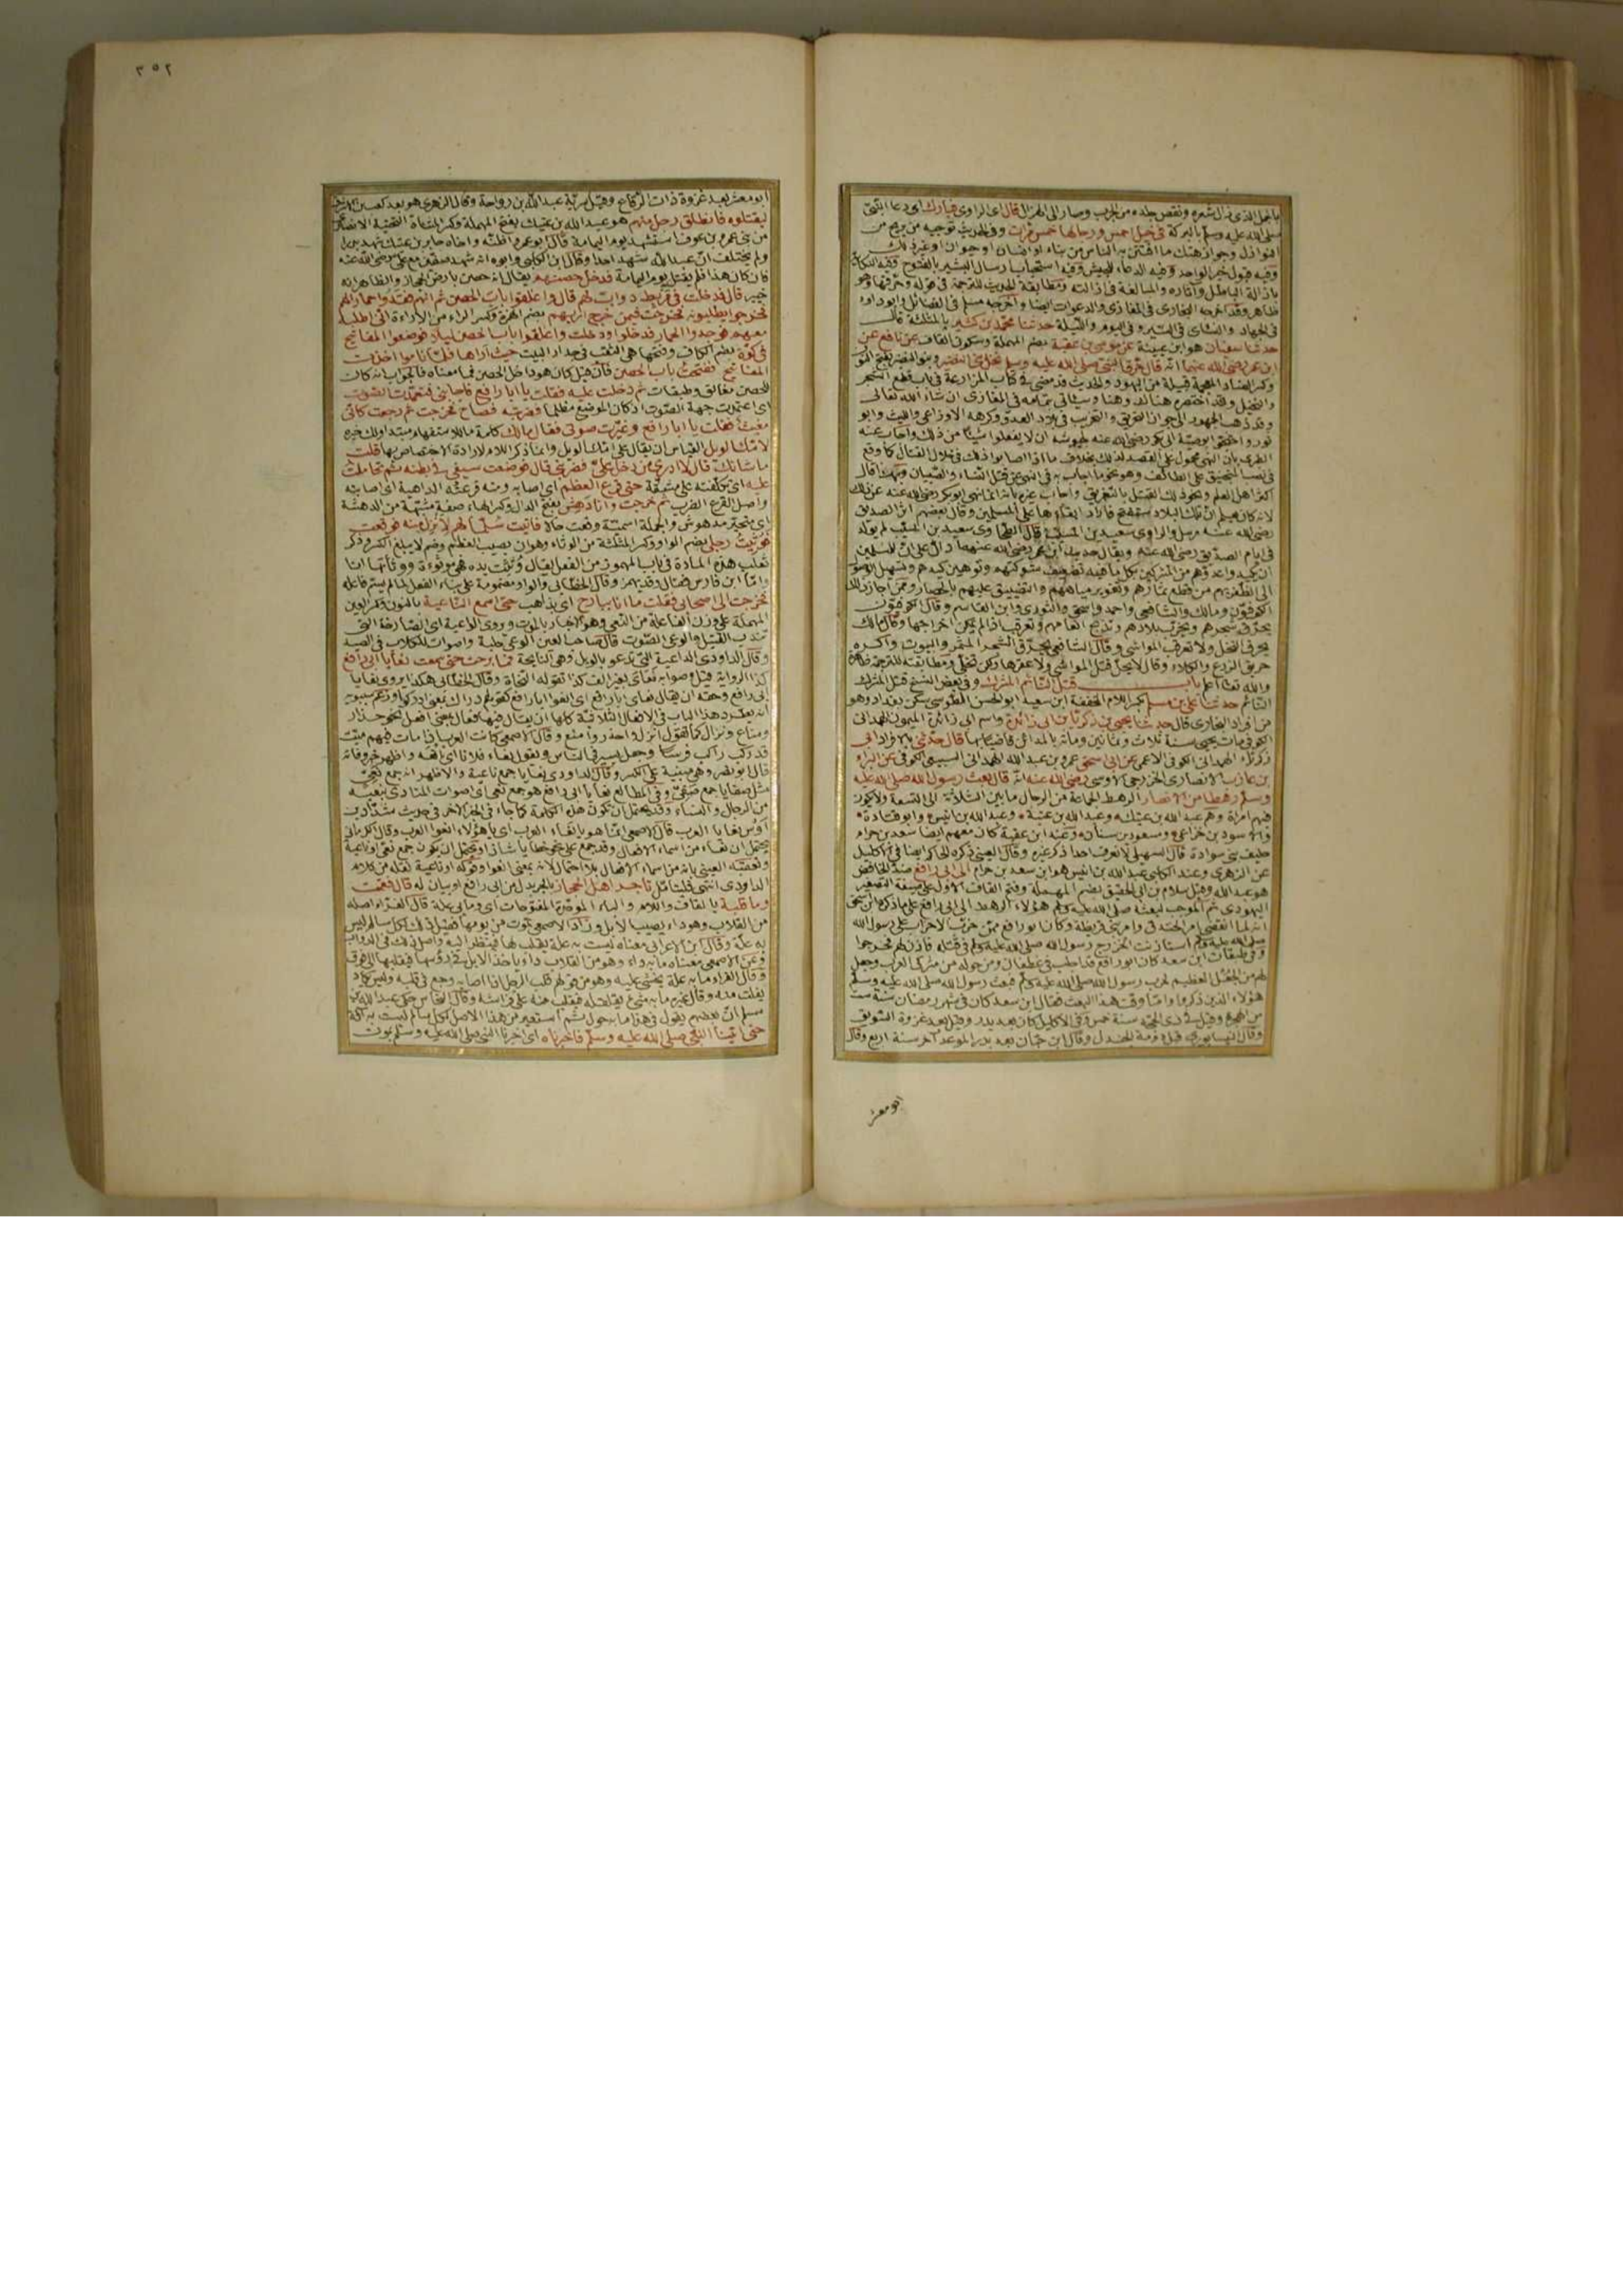 بالجمل الذي زال شعره ونقص جلده من الجرب وصار الى الهزال قال اى الراوى فبارك اى دعا النبي
صلى الله عليه وسلم بالبركة في خيل احمس ورجالها خمس مرات وفي الحديث توجيه من يريح من
النوازل وجواز هتك ما افتتن به الناس من بناء او انسان او حيوان او غير ذلك
وفيه قبول خبر الواحد وفيه الدعاء للجيش وفيه استحباب ارسال البشير بالفتوح وفيه النكاية
بازالة الباطل وآثاره والمبالغة في ازالته ومطابقة الحديث للترجمة في قوله وحرقها وهو
ظاهر وقد اخرجه البخارى في المغازى والدعوات ايضا واخرجه مسلم في الفضائل وابو داود
في الجهاد والنسائى في السير وفي اليوم والليلة حدثنا محمد بن كثير بالمثلثة قال
حدثنا سفيان هو ابن عيينة عن موسى بن عقبة بضم المهملة وسكون القاف عن نافع عن
ابن عمر رضى الله عنهما انه قال حرق النبي صلى الله عليه وسلم نخل بنى النضير وبنو النضير بفتح النون
وكسر الضاد المعجمة قبيلة من اليهود والحديث قد مضى في كتاب المزارعة في باب قطع الشجر
والنخيل وقد اختصره هنالك وهنا وسيأتى بتمامه في المغازى ان شاء الله تعالى
وقد ذهب الجمهور الى جواز التحريق والتخريب في بلاد العدو وكرهه الاوزاعى والليث وابو
ثور واحتجوا بوصية ابى بكر رضى الله عنه لجيوشه ان لا يفعلوا شيئا من ذلك واجاب عنه
الطبرى بان النهى محمول على القصد لذلك بخلاف ما اذا اصابوا ذلك في خلال القتال كما وقع
في نصب المنجنيق على الطائف وهو نحو ما اجاب به في النهى عن قتل النساء والصبيان وبهذا قال
اكثر اهل العلم ونحو ذلك القتل بالتغريق واجاب غيره بانه انما نهى ابو بكر رضى الله عنه عن ذلك
لانه كان يعلم ان تلك البلاد ستفتح فاراد ابقاءها على المسلمين وقال بعضهم اثر الصديق
رضى الله عنه مرسل والراوى سعيد بن المسيب قال الطحاوى سعيد بن المسيب لم يولد
في ايام الصديق رضى الله عنه ويقال حديث ابن عمر رضى الله عنهما دال على ان للمسلمين
ان يكيدوا عدوهم من المشركين بكل ما فيه تضعيف شوكتهم وتوهين كيدهم وتسهيل الوصول
الى الظفر بهم من قطع ثمارهم وتغوير مياههم والتضييق عليهم بالحصار وممن اجاز ذلك
الكوفيون ومالك والشافعى واحمد واسحق والثورى وابن القاسم وقال الكوفيون
يحرق شجرهم ويخرب بلادهم وتذبح انعامهم وتعرقب اذا لم يمكن اخراجها وقال مالك
يحرق النخل ولا تعرقب المواشى وقال الشافعى يحرق الشجر المثمر والبيوت واكره
حريق الزرع والكلاء وقال لا يحل قتل المواشى ولا عقرها ولكن تخلى ومطابقته للترجمة ظاهرة
والله تعالى اعلم باب قتل النائم المشرك وفي بعض النسخ قتل المشرك
النائم حدثنا على بن مسلم بكسر اللام المخففة ابن سعيد ابو الحسن الطوسى سكن بغداد وهو
من افراد البخارى قال حدثنا يحيى بن زكريا بن ابى زائدة واسم ابى زائدة الميمون الهمدانى
الكوفى مات يحيى سنة ثلاث وثمانين ومائة بالمدائن قاضيا بها قال حدثنى بالافراد ابى
زكرياء الهمدانى الكوفى الاعمى عن ابى اسحق عمرو بن عبد الله الهمدانى السبيعى الكوفى عن البراء
بن عازب الانصارى الخزرجى الاوسى رضى الله عنه انه قال بعث رسول الله صلى الله عليه
وسلم رهطا من الانصار الرهط الجماعة من الرجال ما بين الثلاثة الى التسعة ولا يكون
فيهم امرأة وهم عبد الله بن عتيك وعبد الله بن عتبة وعبد الله بن انيس وابو قتادة
والاسود بن خزاعى ومسعود بن سنان وعند ابن عقبة كان معهم ايضا سعد بن حرام
حليف بنى سوادة قال السهيلى لا نعرف احدا ذكره غيره وقال العينى ذكره الحاكم ايضا في الاكليل
عن الزهرى وعند الكلبى عبد الله بن انيس هو ابن سعد بن حرام الى ابى رافع ضد الخافض
هو عبد الله وقيل سلام بن ابى الحقيق بضم المهملة وفتح القاف الاولى على صيغة التصغير
اليهودى ثم الموجب لبعثه صلى الله عليه وسلم هؤلاء الرهط الى ابى رافع على ما ذكره ابن اسحق
انه لما انقضى امر الخندق وامر بنى قريظة وكان ابو رافع ممن حزب الاحزاب على رسول الله
صلى الله عليه وسلم استأذنت الخزرج رسول الله صلى الله عليه وسلم في قتله فاذن لهم فخرجوا
وفي طبقات ابن سعد كان ابو رافع قد اجلب في غطفان ومن حوله من مشركى العرب وجعل
لهم من الجعل العظيم لحرب رسول الله صلى الله عليه وسلم فبعث رسول الله صلى الله عليه وسلم
هؤلاء الذين ذكروا واما وقت هذا البعث فقال ابن سعد كان في شهر رمضان سنة ست
من الهجرة وقيل في ذى الحجة سنة خمس وفي الاكليل كان بعد بدر وقيل بعد غزوة السويق
وقال النيسابورى قبل دومة الجندل وقال ابن حبان بعد بدر الموعد آخر سنة اربع وقال
ابو معشر
٣٥٢
ابو معشر بعد غزوة ذات الرقاع وقبل سرية عبد الله بن رواحة وقال الزهرى هو بعد كعب بن الاشرف
ليقتلوه فانطلق رجل منهم هو عبد الله بن عتيك بفتح المهملة وكسر المثناة التحتية الانصارى
من بنى عمرو بن عوف استشهد يوم اليمامة قال ابو عمر واظنه واخاه جابر بن عتيك شهد بدرا
ولم يختلف ان عبد الله شهد احدا وقال ابن الكلبى وابوه انه شهد صفين مع على رضى الله عنه
فان كان هذا فلم يقتل يوم اليمامة فدخل حصنهم يقال انه حصن بارض الحجاز والظاهر انه
خيبر قال فدخلت في مربط دواب لهم قال واغلقوا باب الحصن ثم انهم فقدوا حمارا لهم
فخرجوا يطلبونه فخرجت فيمن خرج اريهم بضم الهمزة وكسر الراء من الاراءة اننى اطلبه
معهم فوجدوا الحمار فدخلوا ودخلت واغلقوا باب الحصن ليلا فوضعوا المفاتيح
في كوة بضم الكاف وفتحها هى الثقب في جدار البيت حيث اراها فلما ناموا اخذت
المفاتيح ففتحت باب الحصن فان قيل كان هو داخل الحصن فما معناه فالجواب انه كان
للحصن مغاليق وطبقات ثم دخلت عليه فقلت يا ابا رافع فاجابنى فتعمدت الصوت
اى اعتمدت جهة الصوت اذ كان الموضع مظلما فضربته فصاح فخرجت ثم رجعت كأنى
مغيث فقلت يا ابا رافع وغيرت صوتى فقال مالك كلمة ما للاستفهام مبتدا ولك خبره
لامك الويل القياس ان يقال على امك الويل وانما ذكر اللام لارادة الاختصاص بها قلت
ما شانك قال لا ادرى من دخل على فضربنى قال فوضعت سيفى في بطنه ثم تحاملت
عليه اى تكلفته على مشقة حتى قرع العظم اى اصابه ومنه قرعته الداهية اى اصابته
واصل القرع الضرب ثم خرجت وانا دهش بفتح الدال وكسر الهاء صفة مشبهة من الدهشة
اى متحير مدهوش والجملة اسمية وقعت حالا فاتيت سلما لهم لانزل منه فوقعت
فوثئت رجلى بضم الواو وكسر المثلثة من الوثاء وهو ان يصيب العظم وصم لا يبلغ الكسر وذكر
ثعلب هذه المادة في باب المهموز من الفعل يقال وثئت يده فهى موثوءة ووثأتها انا
واما ابن فارس فقال وقد يهمز وقال الخطابى والواو مضمومة على بناء الفعل لما لم يسم فاعله
فخرجت الى اصحابى فقلت ما انا ببارح اى بذاهب حتى اسمع الناعية بالنون وكسر العين
المهملة على وزن الفاعلة من النعى وهو الاخبار بالموت ويروى الواعية اى الصارخة التى
تندب القتيل والوعى الصوت قال صاحب العين الوعى جلبة واصوات للكلاب في الصيد
وقال الداودى الداعية التى تدعو بالويل وهى النايحة فما برحت حتى سمعت نعايا ابى رافع
كذا الرواية قيل وصوابه نعاى بغير الف كذا تقوله النحاة وقال الخطابى هكذا يروى نعايا
ابى رافع وحقه ان يقال نعاى ابا رافع اى انعوا ابا رافع كقولهم دراك بمعنى ادركوا وزعم سيبويه
انه يطرد هذا الباب في الافعال الثلاثية كلها ان يقال فيها فعال بمعنى افعل نحو حذار
ومناع ونزال كما تقول انزل واحذر وامنع وقال الاصمعى كانت العرب اذا مات فيهم ميت
قدر ركب راكب فرسا وجعل يسير في الناس ويقول نعاء فلانا اى انعه واظهر خبر وفاته
قال ابو نصر وهى مبنية على الكسر وقال الداودى نعايا جمع ناعية والاظهر انه جمع نعى
مثل صفايا جمع صفى وفي المطالع نعايا ابى رافع هو جمع نعى اى اصوات المنادى بنعيه
من الرجال والنساء وقد يحتمل ان تكون هذه الكلمة كما جاء في الخبر الآخر في حديث شداد بن
اوس نعايا العرب قال الاصمعى انما هو يا نعاء العرب اى يا هؤلاء انعوا العرب وقال الكرمانى
يحتمل ان نعاء من اسماء الافعال وقد جمع على نحو خطايا شاذا ويحتمل ان يكون جمع نعى او ناعية
وتعقبه العينى بانه من اسماء الافعال بلا احتمال لانه بمعنى انعوا وقوله او ناعية نقله من كلام
الداودى انتهى فليتأمل تاجر اهل الحجاز بالجر بدل من ابى رافع او بيان له قال فقمت
وما بى قلبة بالقاف واللام والباء الموحدة المفتوحات اى وما بى علة قال الفراء اصله
من القلاب وهو داء يصيب الابل وزاد الاصمعى تموت من يومها فقيل لذلك لكل سالم ليس
به علة وقال ابن الاعرابى معناه ليست به علة يقلب لها فينظر اليه واصل ذلك في الدواب
وعن الاصمعى معناه ما به داء وهو من القلاب داء ياخذ الابل في رؤسها فيقلبها الى فوق
وقال الفراء ما به علة يخشى عليه وهو من قولهم قلب الرجل اذا اصابه وجع في قلبه وليس يكاد
يفلت منه وقال غيره ما به شئ يقلقله فيقلب منه على فراشه وقال النحاس حكى عبد الله بن
مسلم ان بعضهم يقول في هذا ما به حول ثم استعير من هذا الاصل لكل سالم ليست به آفة
حتى اتينا النبي صلى الله عليه وسلم فاخبرناه اى اخبرنا النبي صلى الله عليه وسلم بموت